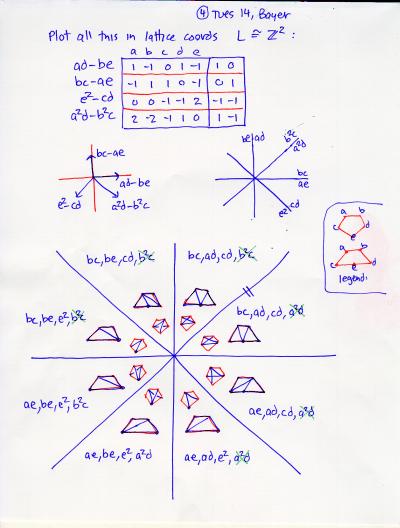 ④ Tues 14, Bayer
Plot all this in lattice coords L ≅ ℤ² :
a b c d e
ad-be 1 -1 0 1 -1 1 0
bc-ae -1 1 1 0 -1 0 1
e²-cd 0 0 -1 -1 2 -1 -1
a²d-b²c 2 -2 -1 1 0 1 -1
bc-ae
ad-be
e²-cd
a²d-b²c
be ad
b²c
a²d
bc
ae
cd
e²
a b
c d
e
a b
c e d
legend:
bc, be, cd, b²c
bc, ad, cd, b²c
bc, be, e², b²c
bc, ad, cd, a²d
ae, be, e², b²c
ae, ad, cd, a²d
ae, be, e², a²d
ae, ad, e², a²d